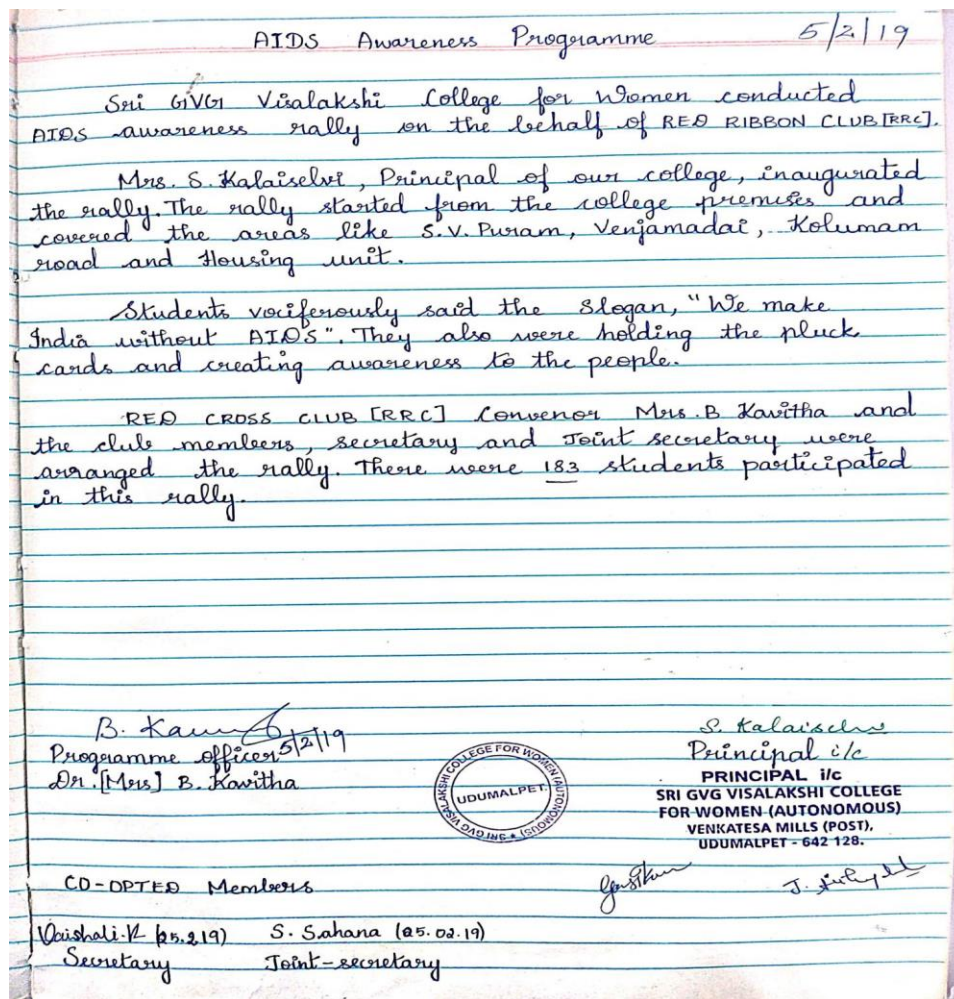 AIDS Awareness Programme 5/2/19
Sri GVG Visalakshi College for Women conducted
AIDS awareness rally on the behalf of RED RIBBON CLUB [RRC].
Mrs. S. Kalaiselvi, Principal of our college, inaugurated
the rally. The rally started from the college premises and
covered the areas like S.V. Puram, Venjamadai, Kolumam
road and Housing unit.
Students vociferously said the slogan, "We make
India without AIDS". They also were holding the pluck
cards and creating awareness to the people.
RED CROSS CLUB [RRC] Convenor Mrs. B Kavitha and
the club members, secretary and Joint secretary were
arranged the rally. There were 183 students participated
in this rally.
B. 5/2/19
Programme officer
Dr. [Mrs] B. Kavitha
SRI GVG VISALAKSHI COLLEGE FOR WOMEN (AUTONOMOUS) *
UDUMALPET.
S. Kalaiselvi
Principal i/c
PRINCIPAL i/c
SRI GVG VISALAKSHI COLLEGE
FOR WOMEN (AUTONOMOUS)
VENKATESA MILLS (POST),
UDUMALPET - 642 128.
CO-OPTED Members
J.
Vaishali.K (25.2.19) S. Sahana (25.02.19)
Secretary Joint-secretary